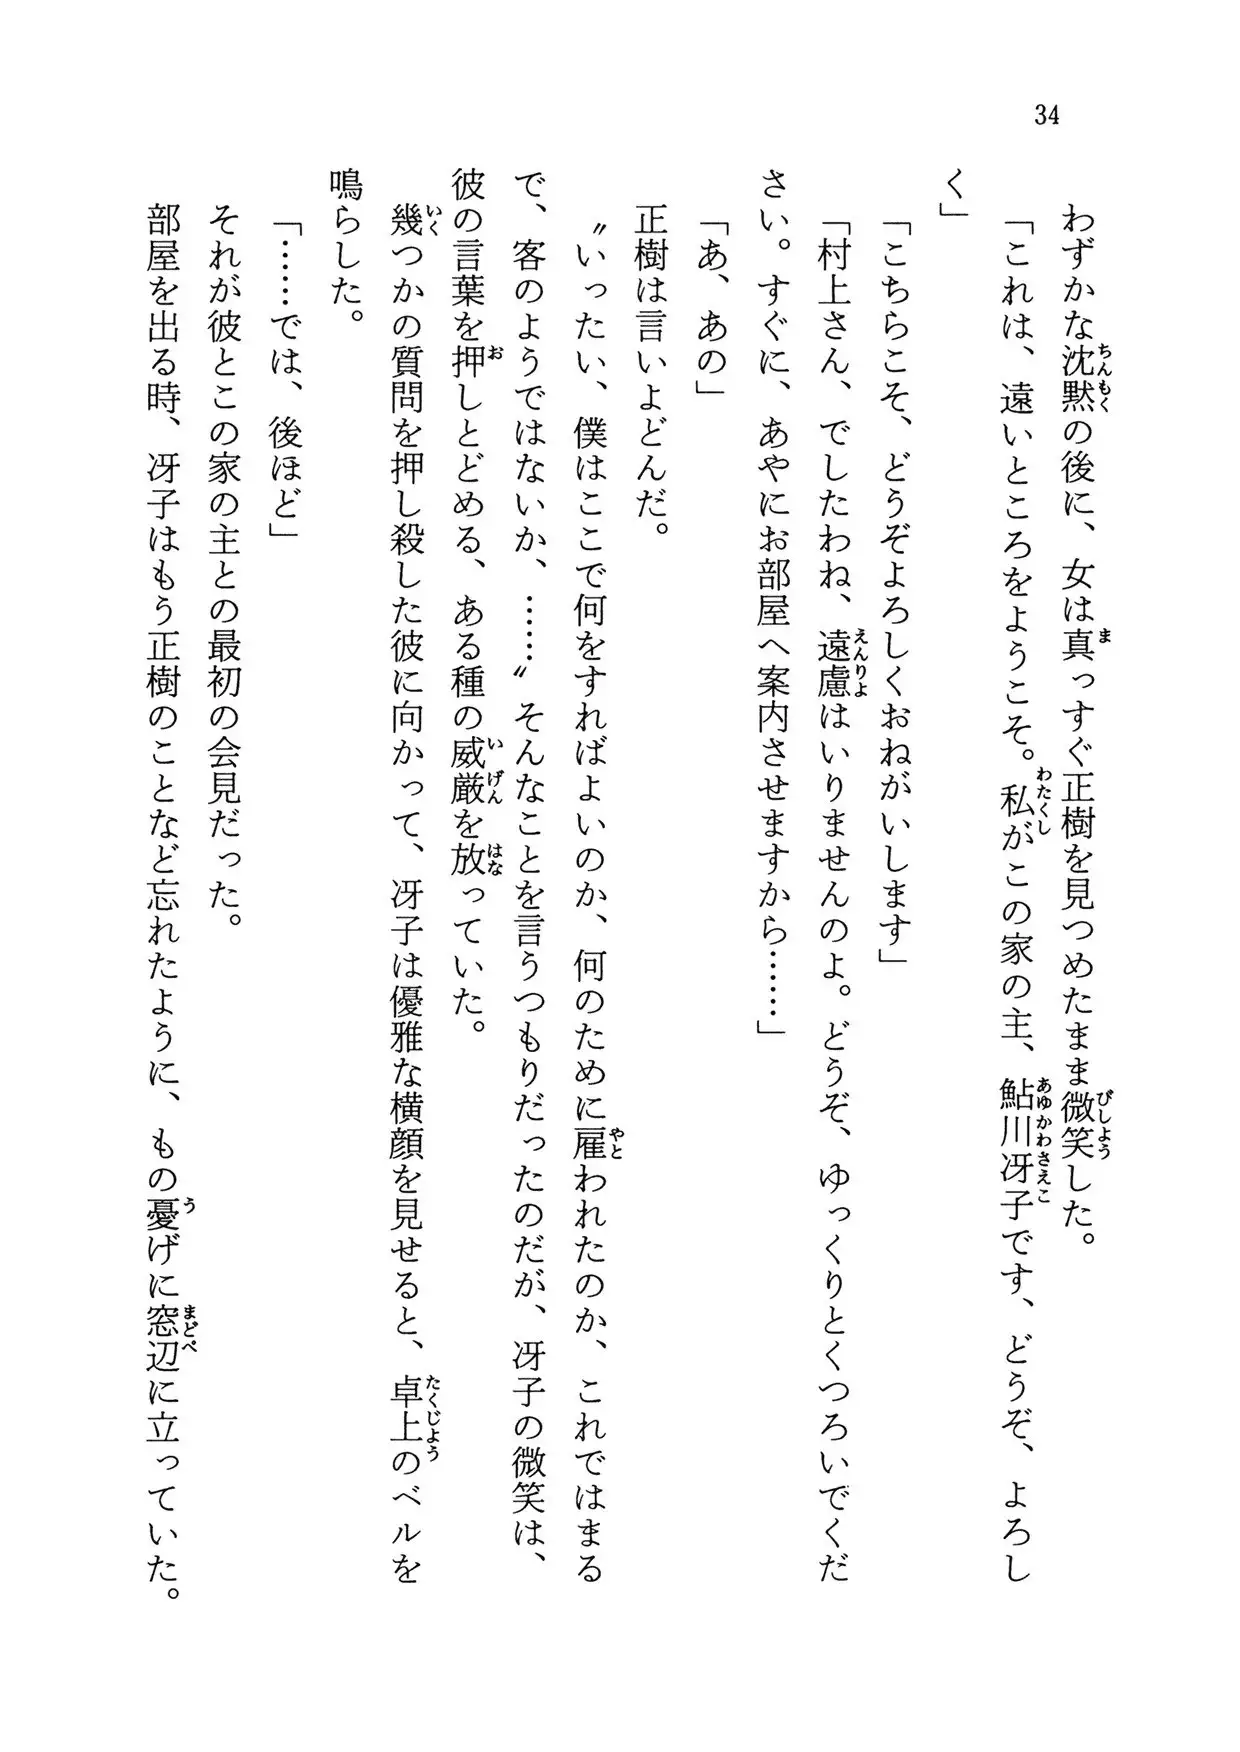 34
わずかな沈黙の後に、女は真っすぐ正樹を見つめたまま微笑した。
「これは、遠いところをようこそ。私がこの家の主、鮎川冴子です、どうぞ、よろし
く」
「こちらこそ、どうぞよろしくおねがいします」
「村上さん、でしたわね、遠慮はいりませんのよ。どうぞ、ゆっくりとくつろいでくだ
さい。すぐに、あやにお部屋へ案内させますから……」
「あ、あの」
正樹は言いよどんだ。
〝いったい、僕はここで何をすればよいのか、何のために雇われたのか、これではまる
で、客のようではないか、……〟そんなことを言うつもりだったのだが、冴子の微笑は、
彼の言葉を押しとどめる、ある種の威厳を放っていた。
幾つかの質問を押し殺した彼に向かって、冴子は優雅な横顔を見せると、卓上のベルを
鳴らした。
「……では、後ほど」
それが彼とこの家の主との最初の会見だった。
部屋を出る時、冴子はもう正樹のことなど忘れたように、もの憂げに窓辺に立っていた。